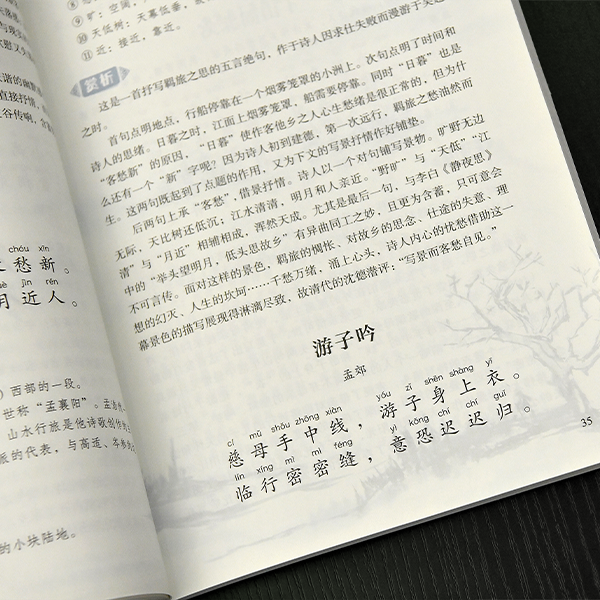 chóu xīn
愁新。
jìn rén
月近人。
）西部的一段。
世称“孟襄阳”。
山水行旅是他诗歌创作的主
派的代表，与高适、岑参
的小块陆地。
⑨旷：空阔
⑩天低树：天幕低垂
⑪近：接近，靠近。
赏析
这是一首抒写羁旅之思的五言绝句，作于诗人因求仕失败而漫游于吴越
之时。
首句点明地点，行船停靠在一个烟雾笼罩的小洲上。次句点明了时间和
诗人的思绪。日暮之时，江面上烟雾笼罩，船需要停靠。同时“日暮”也是
“客愁新”的原因，“日暮”使作客他乡之人心生愁绪是很正常的，但为什
么还有一个“新”字呢？因为诗人初到建德，第一次远行，羁旅之愁油然而
生。这两句既起到了点题的作用，又为下文的写景抒情作好铺垫。
后两句上承“客愁”，借景抒情。诗人以一个对句铺写景物。旷野无边
无际，天比树还低沉；江水清清，明月和人亲近。“野旷”与“天低”“江
清”与“月近”相辅相成，浑然天成。尤其是最后一句，与李白《静夜思》
中的“举头望明月，低头思故乡”有异曲同工之妙，且更为含蓄，只可意会
不可言传。面对这样的景色，羁旅的惆怅、对故乡的思念、仕途的失意、理
想的幻灭、人生的坎坷……千愁万绪，涌上心头，诗人内心的忧愁借助这一
幕景色的描写展现得淋漓尽致，故清代的沈德潜评：“写景而客愁自见。”
游子吟
孟郊
cí mǔ shǒu zhōng xiàn yóu zǐ shēn shàng yī
慈母手中线，游子身上衣。
lín xíng mì mì féng yì kǒng chí chí guī
临行密密缝，意恐迟迟归。
35